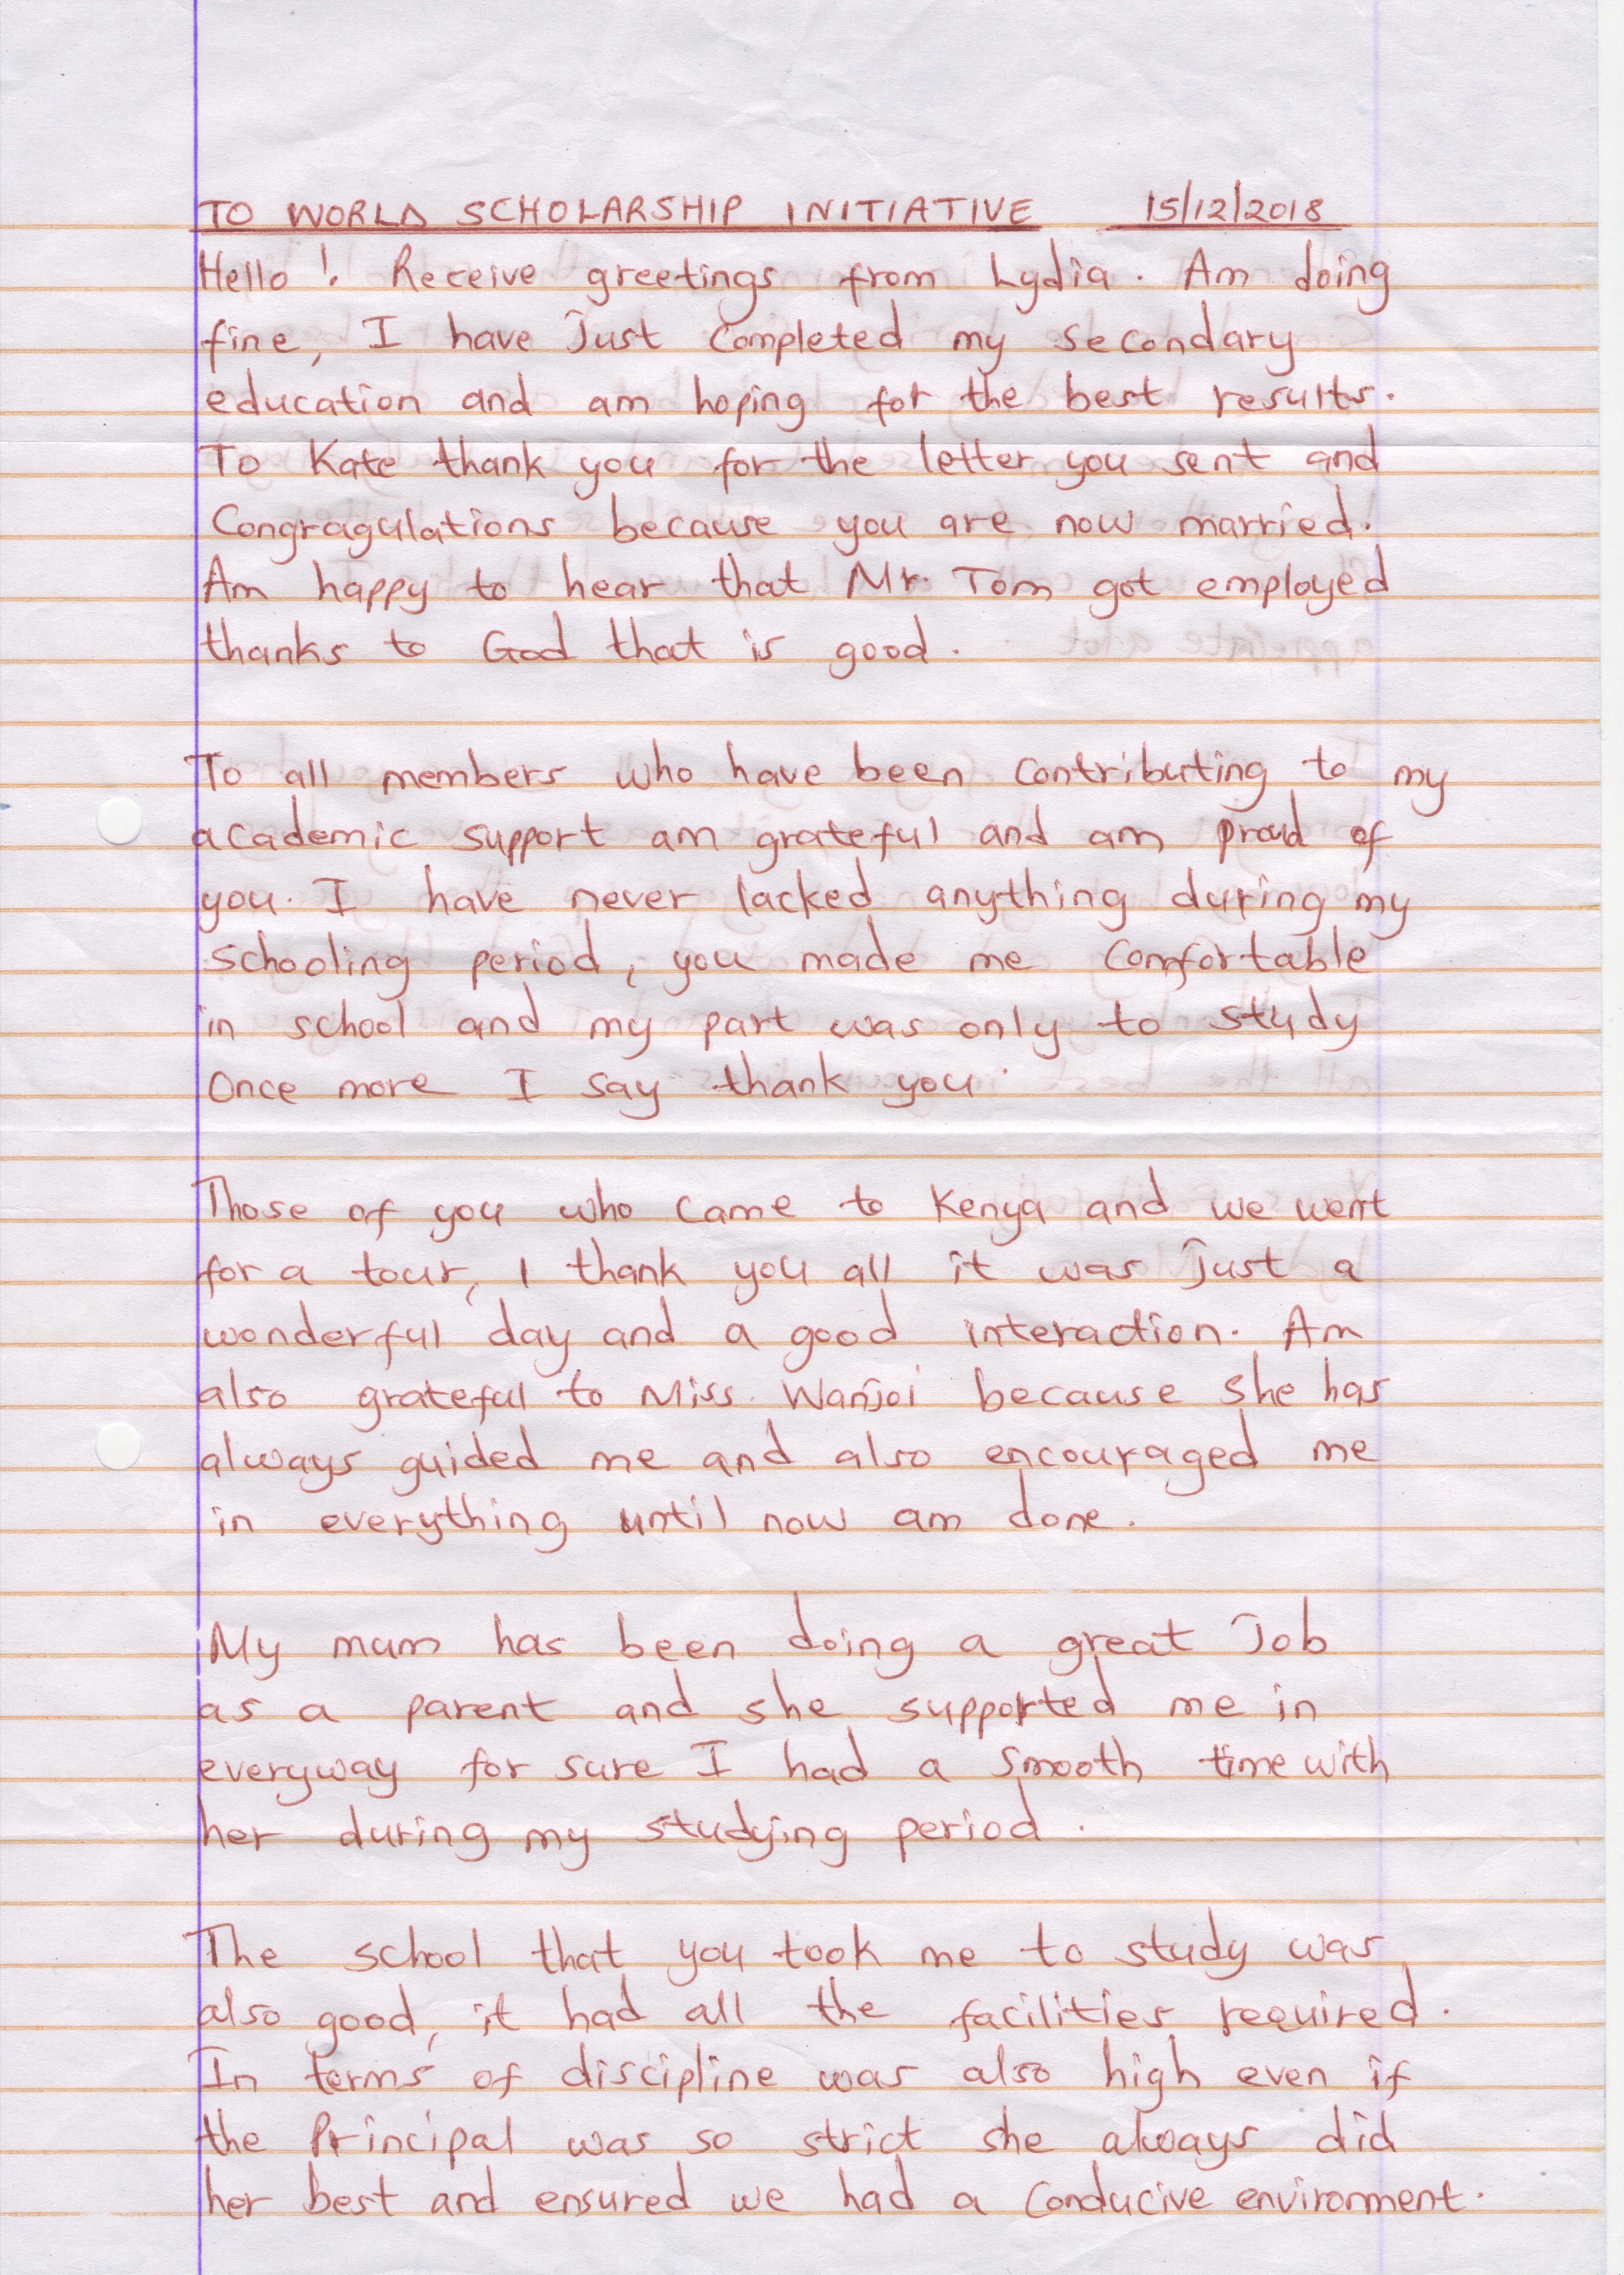 TO WORLD SCHOLARSHIP INITIATIVE 15/12/2018
Hello !. Receive greetings from Lydia. Am doing
fine, I have Just completed my secondary
education and am hoping for the best results.
To Kate thank you for the letter you sent and
Congragulations because you are now married.
Am happy to hear that Mr. Tom got employed
thanks to God that is good.
To all members who have been contributing to my
academic support am grateful and am proud of
you. I have never lacked anything during my
schooling period, you made me comfortable
in school and my part was only to study
Once more I say thank you.
Those of you who came to Kenya and we went
for a tour, I thank you all it was Just a
wonderful day and a good interaction. Am
also grateful to Miss. Wanjoi because she has
always guided me and also encouraged me
in everything until now am done.
My mum has been doing a great Job
as a parent and she supported me in
everyway for sure I had a smooth time with
her during my studying period.
The school that you took me to study was
also good, it had all the facilities required.
In terms of discipline was also high even if
the Principal was so strict she always did
her best and ensured we had a conducive environment.